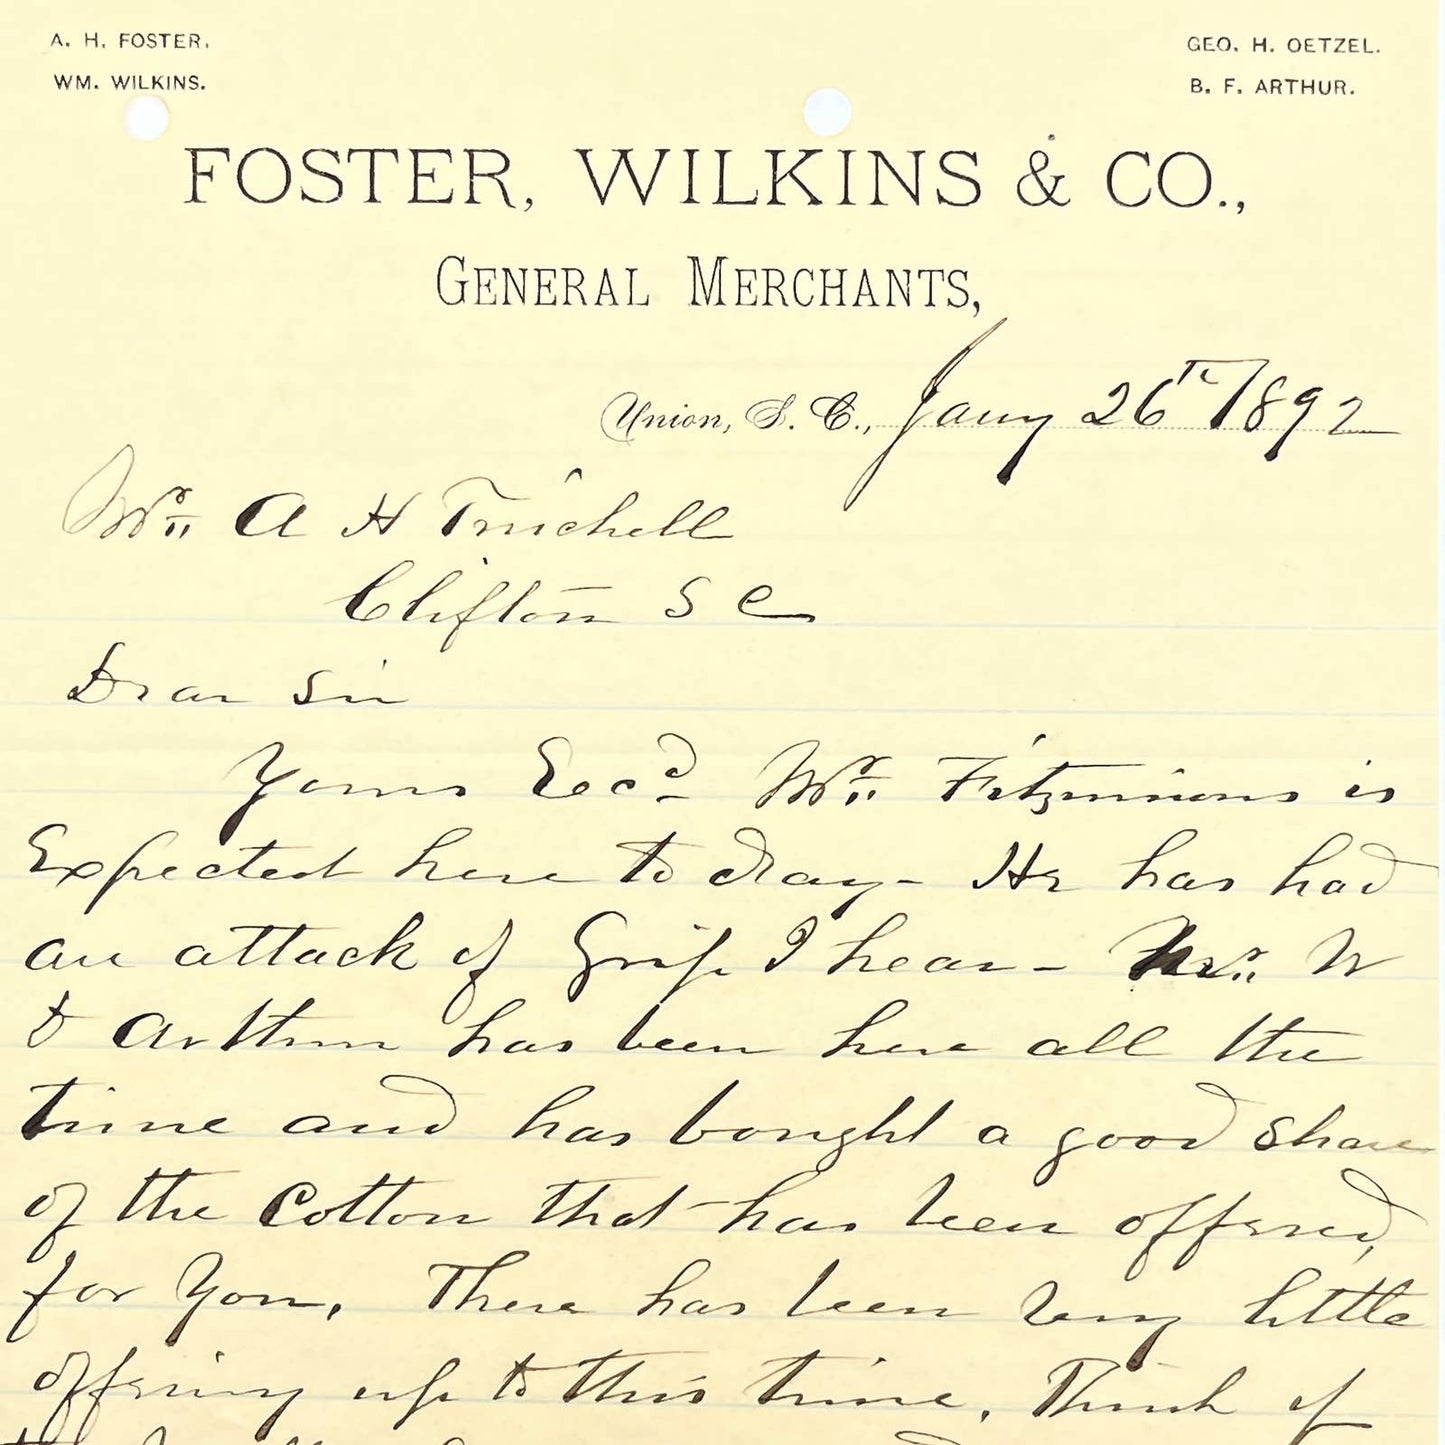 A. H. FOSTER.
WM. WILKINS.
GEO. H. OETZEL.
B. F. ARTHUR.
FOSTER, WILKINS & CO.,
GENERAL MERCHANTS,
Union, S. C., Jany 26th 1892
Mr. A H Twichell
Clifton S C
Dear Sir
Yours Recd. Mr. Fitzsimons is
Expected here to day - He has had
an attack of Grip I hear - Mr. W
D Arthur has been here all the
time and has bought a good share
of the Cotton that has been offered,
for You. There has been very little
offering up to this time. Think if